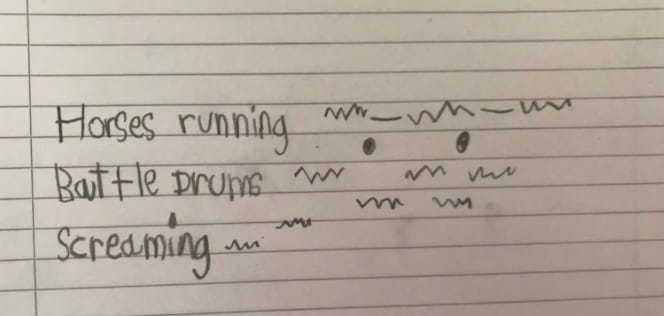 Horses running
Battle Drums
Screaming